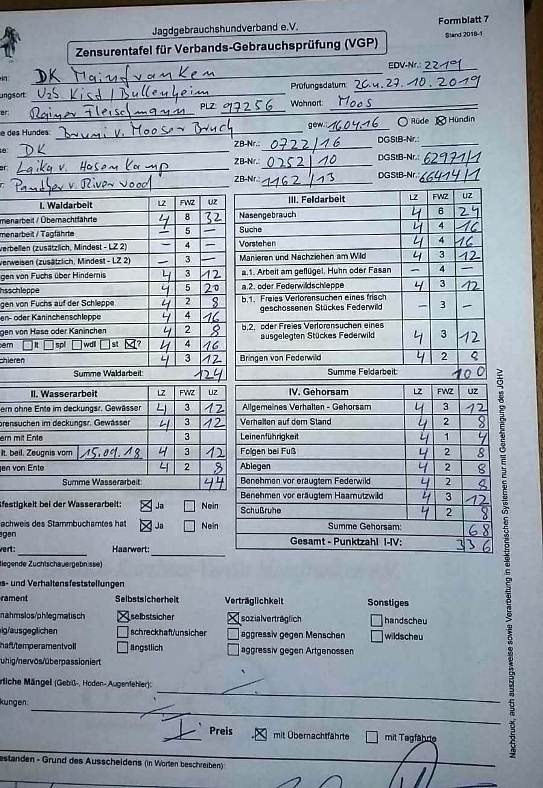 Jagdgebrauchshundverband e.V.
Formblatt 7
Stand 2018-1
Zensurentafel für Verbands-Gebrauchsprüfung (VGP)
ein: DK Mainfranken EDV-Nr.: 22191
ungsort: Uzb Kist / Bullenheim Prüfungsdatum: 26.u.27.10.2019
er: Rainer Fleischmann PLZ 97256 Wohnort: Moos
e des Hundes: Brumi v. Mooser Bruch gew.: 16.04.16 Rüde ☒ Hündin
se: DK ZB-Nr.: 0722/16 DGStB-Nr.:
er: Laika v. Hasenkamp ZB-Nr.: 0252/10 DGStB-Nr.: 62971/1
r: Panther v. River vood ZB-Nr.: 1162/13 DGStB-Nr.: 66414/1
I. Waldarbeit LZ FWZ UZ
menarbeit / Übernachtfährte 4 8 32
menarbeit / Tagfährte – 5 –
verbellen (zusätzlich, Mindest - LZ 2) – 4 –
verweisen (zusätzlich, Mindest - LZ 2) – 3 –
gen von Fuchs über Hindernis 4 3 12
hsschleppe 4 5 20
gen von Fuchs auf der Schleppe 4 2 8
en- oder Kaninchenschleppe 4 4 16
gen von Hase oder Kaninchen 4 2 8
ern ☐ lt ☐ spl ☐ wdl ☐ st ☒ ? 4 4 16
chieren 4 3 12
Summe Waldarbeit: 124
III. Feldarbeit LZ FWZ UZ
Nasengebrauch 4 6 24
Suche 4 4 16
Vorstehen 4 4 16
Manieren und Nachziehen am Wild 4 3 12
a.1. Arbeit am geflügel. Huhn oder Fasan – 4 –
a.2. oder Federwildschleppe 4 3 12
b.1. Freies Verlorensuchen eines frisch
geschossenen Stückes Federwild – 3 –
b.2. oder Freies Verlorensuchen eines
ausgelegten Stückes Federwild 4 3 12
Bringen von Federwild 4 2 8
Summe Feldarbeit: 100
II. Wasserarbeit LZ FWZ UZ
ern ohne Ente im deckungsr. Gewässer 4 3 12
orensuchen im deckungsr. Gewässer 4 3 12
ern mit Ente 3
lt. beil. Zeugnis vom 15.09.18 4 3 12
gen von Ente 4 2 8
Summe Wasserarbeit: 44
IV. Gehorsam LZ FWZ UZ
Allgemeines Verhalten - Gehorsam 4 3 12
Verhalten auf dem Stand 4 2 8
Leinenführigkeit 4 1 4
Folgen bei Fuß 4 2 8
Ablegen 4 2 8
Benehmen vor eräugtem Federwild 4 2 8
Benehmen vor eräugtem Haarnutzwild 4 3 12
Schußruhe 4 2 8
Summe Gehorsam: 68
Gesamt - Punktzahl I-IV: 336
sfestigkeit bei der Wasserarbeit: ☒ Ja ☐ Nein
achweis des Stammbuchamtes hat ☒ Ja ☐ Nein
egen
wert: Haarwert:
liegende Zuchtschauergebnisse)
s- und Verhaltensfeststellungen
rament Selbstsicherheit Verträglichkeit Sonstiges
nahmslos/phlegmatisch ☒ selbstsicher ☒ sozialverträglich ☐ handscheu
ig/ausgeglichen ☐ schreckhaft/unsicher ☐ aggressiv gegen Menschen ☐ wildscheu
haft/temperamentvoll ☐ ängstlich ☐ aggressiv gegen Artgenossen
ruhig/nervös/überpassioniert
rliche Mängel (Gebiß-, Hoden- Augenfehler):
kungen:
I. Preis ☒ mit Übernachtfährte ☐ mit Tagfährte
estanden - Grund des Ausscheidens (in Worten beschreiben):
Nachdruck, auch auszugsweise sowie Verarbeitung in elektronischen Systemen nur mit Genehmigung des JGHV